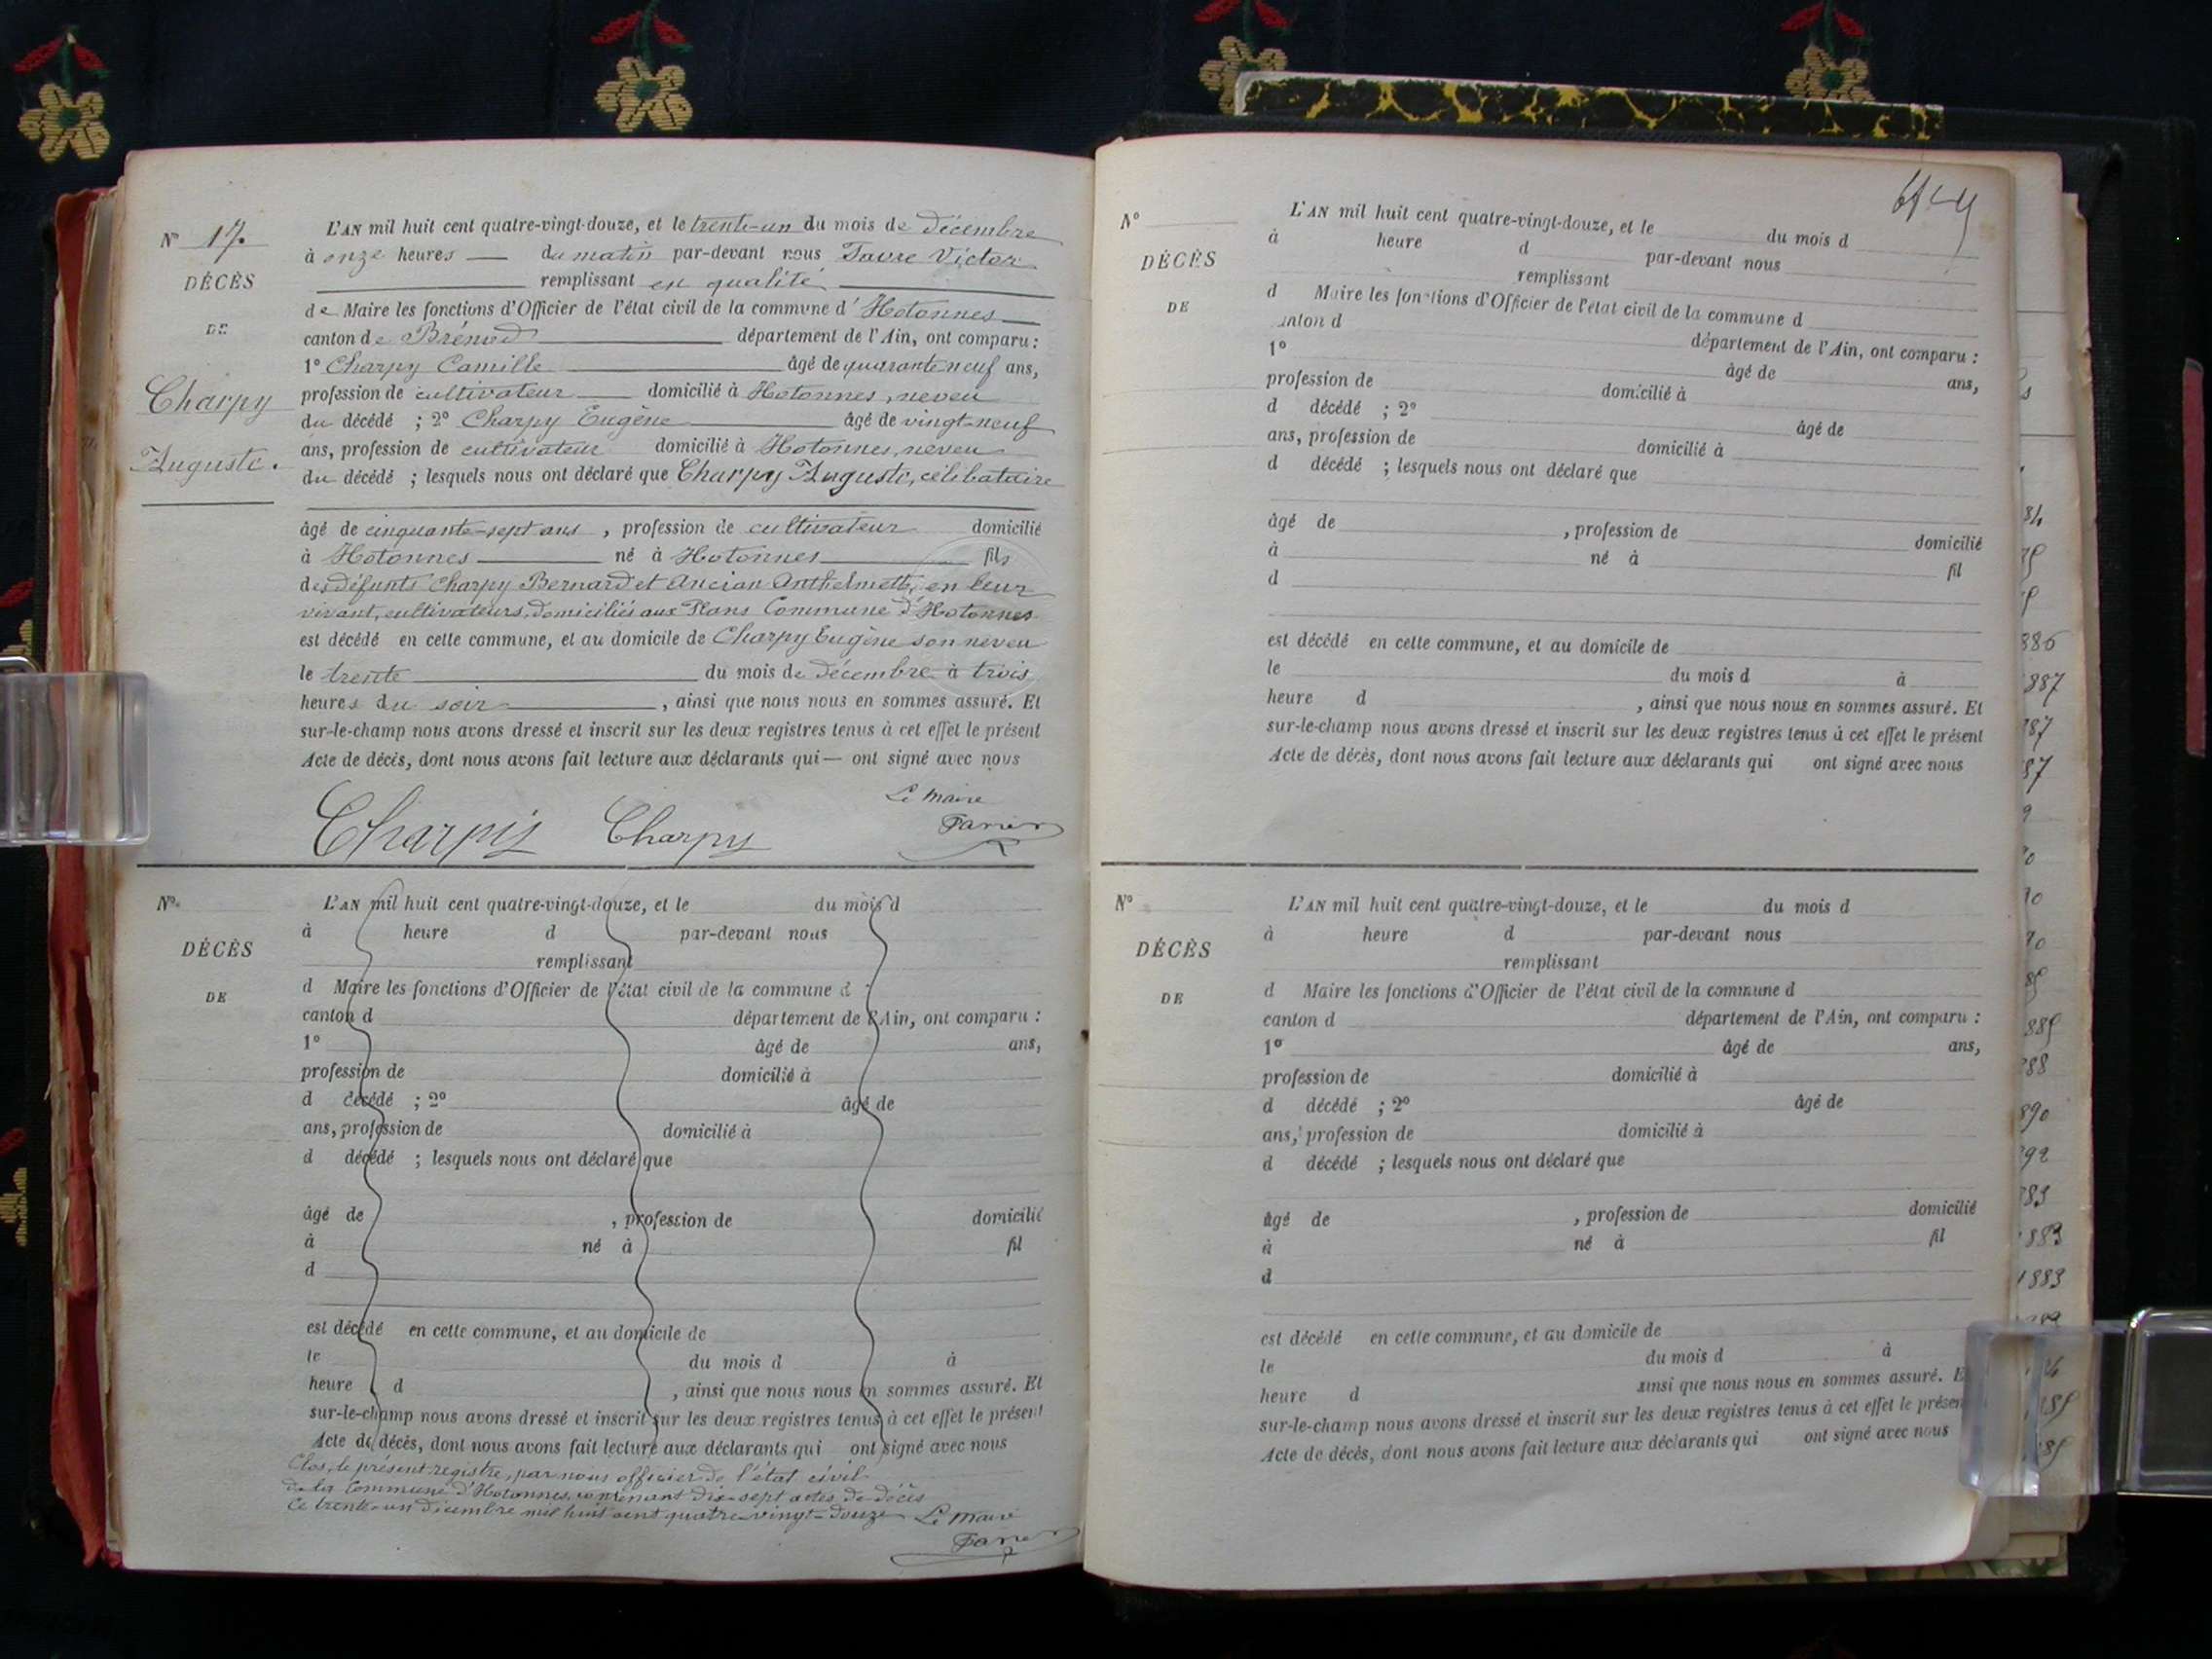 N° 17.
DÉCÈS
DE
Charpy
Auguste.
L'AN mil huit cent quatre-vingt-douze, et le trente-un du mois de Décembre
à onze heures — du matin par-devant nous Favre Victor
remplissant en qualité
de Maire les fonctions d'Officier de l'état civil de la commune d'Hotonnes
canton de Brénod département de l'Ain, ont comparu :
1° Charpy Camille âgé de quarante neuf ans,
profession de cultivateur domicilié à Hotonnes, neveu
du décédé ; 2° Charpy Eugène âgé de vingt-neuf
ans, profession de cultivateur domicilié à Hotonnes, neveu
du décédé ; lesquels nous ont déclaré que Charpy Auguste, célibataire
âgé de cinquante-sept ans, profession de cultivateur domicilié
à Hotonnes né à Hotonnes fils
des défunts Charpy Bernard et Ancian Anthelmette, en leur
vivant, cultivateurs, domiciliés aux Plans Commune d'Hotonnes
est décédé en cette commune, et au domicile de Charpy Eugène son neveu
le trente du mois de décembre à trois
heures du soir, ainsi que nous nous en sommes assuré. Et
sur-le-champ nous avons dressé et inscrit sur les deux registres tenus à cet effet le présent
Acte de décès, dont nous avons fait lecture aux déclarants qui — ont signé avec nous
Le Maire
Charpy Charpy Favre
N°
DÉCÈS
DE
L'AN mil huit cent quatre-vingt-douze, et le du mois d
à heure d par-devant nous
remplissant
d Maire les fonctions d'Officier de l'état civil de la commune d
canton d département de l'Ain, ont comparu :
1° âgé de ans,
profession de domicilié à
d décédé ; 2° âgé de
ans, profession de domicilié à
d décédé ; lesquels nous ont déclaré que
âgé de , profession de domicilié
à né à fil
d
est décédé en cette commune, et au domicile de
le du mois d à
heure d , ainsi que nous nous en sommes assuré. Et
sur-le-champ nous avons dressé et inscrit sur les deux registres tenus à cet effet le présent
Acte de décès, dont nous avons fait lecture aux déclarants qui ont signé avec nous
Clos, le présent registre, par nous officier de l'état civil
de la Commune d'Hotonnes, contenant dix-sept actes de décès
ce trente-un décembre mil huit cent quatre-vingt-douze Le Maire
Favre
N°
DÉCÈS
DE
L'AN mil huit cent quatre-vingt-douze, et le du mois d
à heure d par-devant nous
remplissant
d Maire les fonctions d'Officier de l'état civil de la commune d
canton d département de l'Ain, ont comparu :
1° âgé de ans,
profession de domicilié à
d décédé ; 2° âgé de
ans, profession de domicilié à
d décédé ; lesquels nous ont déclaré que
âgé de , profession de domicilié
à né à
d fil
est décédé en cette commune, et au domicile de
le du mois d à
heure d , ainsi que nous nous en sommes assuré. Et
sur-le-champ nous avons dressé et inscrit sur les deux registres tenus à cet effet le présent
Acte de décès, dont nous avons fait lecture aux déclarants qui ont signé avec nous
N°
DÉCÈS
DE
L'AN mil huit cent quatre-vingt-douze, et le du mois d
à heure d par-devant nous
remplissant
d Maire les fonctions d'Officier de l'état civil de la commune d
canton d département de l'Ain, ont comparu :
1° âgé de ans,
profession de domicilié à
d décédé ; 2° âgé de
ans, profession de domicilié à
d décédé ; lesquels nous ont déclaré que
âgé de , profession de domicilié
à né à fil
d
est décédé en cette commune, et au domicile de
le du mois d à
heure d ainsi que nous nous en sommes assuré. E
sur-le-champ nous avons dressé et inscrit sur les deux registres tenus à cet effet le présen
Acte de décès, dont nous avons fait lecture aux déclarants qui ont signé avec nous
886
887
87
87
90
90
889
888
890
892
883
1883
1883